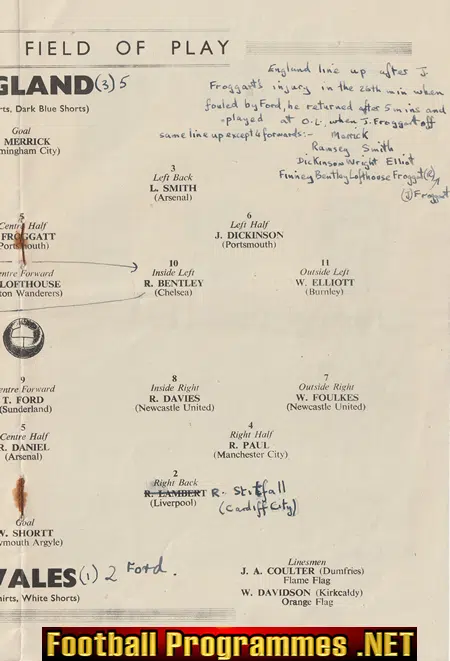 FIELD OF PLAY
GLAND (3) 5
rts, Dark Blue Shorts)
England line up after J.
Froggatt's injury in the 26th min when
fouled by Ford, he returned after 5 mins and
played at O.L. when J. Froggatt off
same line up except 4 forwards:- Merrick
Ramsey Smith
Dickinson Wright Elliot
Finney Bentley Lofthouse Froggat (R)
(J) Froggatt
Goal
MERRICK
mingham City)
3
Left Back
L. SMITH
(Arsenal)
5
Centre Half
FROGGATT
(Portsmouth)
6
Left Half
J. DICKINSON
(Portsmouth)
entre Forward
LOFTHOUSE
ton Wanderers)
10
Inside Left
R. BENTLEY
(Chelsea)
11
Outside Left
W. ELLIOTT
(Burnley)
9
entre Forward
T. FORD
(Sunderland)
8
Inside Right
R. DAVIES
(Newcastle United)
7
Outside Right
W. FOULKES
(Newcastle United)
5
Centre Half
R. DANIEL
(Arsenal)
4
Right Half
R. PAUL
(Manchester City)
2
Right Back
R. LAMBERT R. Stitfall
(Liverpool) (Cardiff City)
Goal
W. SHORTT
ymouth Argyle)
WALES (1) 2 Ford.
hirts, White Shorts)
Linesmen
J. A. COULTER (Dumfries)
Flame Flag
W. DAVIDSON (Kirkcaldy)
Orange Flag
Football Programmes .NET